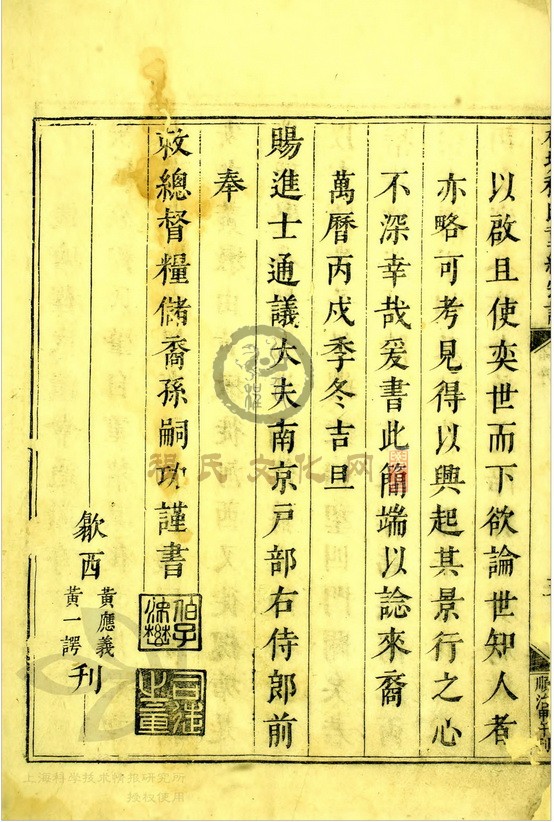 以啟且使奕世而下欲論世知人者
亦略可考見得以興起其景行之心
不深幸哉爰書此簡端以諗來裔
萬曆丙戌季冬吉旦
賜進士通議大夫南京戶部右侍郎前
奉
敕總督糧儲裔孫嗣功謹書
歙西
黃應義
黃一諤
刊
程氏文化网
上海科学技术情报研究所
授权使用